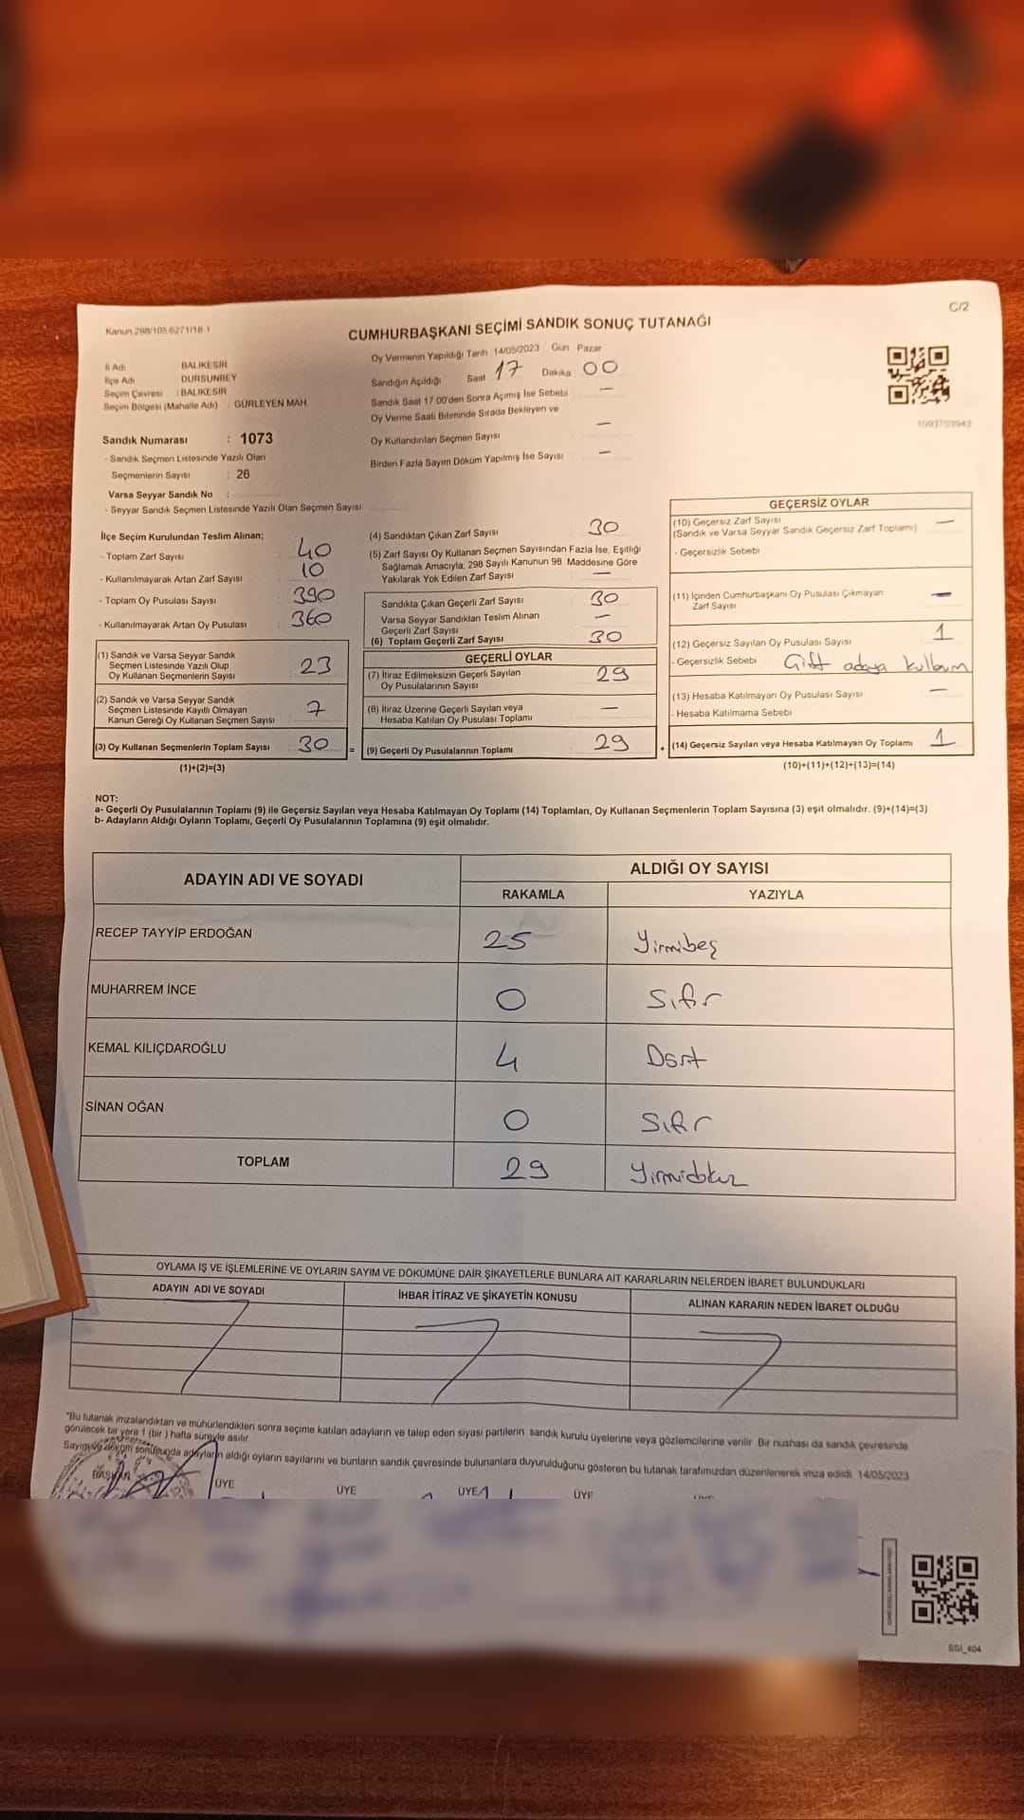 C/2
Kanun 298/105 6271/18-1
CUMHURBAŞKANI SEÇİMİ SANDIK SONUÇ TUTANAĞI
İl Adı BALIKESİR
İlçe Adı DURSUNBEY
Seçim Çevresi : BALIKESİR
Seçim Bölgesi (Mahalle Adı) : GÜRLEYEN MAH.
Oy Vermenin Yapıldığı Tarih 14/05/2023 Gün Pazar
Sandığın Açıldığı Saat 17 Dakika 00
Sandık Saat 17.00'den Sonra Açımış İse Sebebi —
Oy Verme Saati Bitiminde Sırada Bekleyen ve
Oy Kullandırılan Seçmen Sayısı —
Birden Fazla Sayım Döküm Yapılmış İse Sayısı —
Sandık Numarası : 1073
- Sandık Seçmen Listesinde Yazılı Olan
Seçmenlerin Sayısı : 26
Varsa Seyyar Sandık No :
- Seyyar Sandık Seçmen Listesinde Yazılı Olan Seçmen Sayısı
İlçe Seçim Kurulundan Teslim Alınan;
- Toplam Zarf Sayısı 40
- Kullanılmayarak Artan Zarf Sayısı 10
- Toplam Oy Pusulası Sayısı 390
- Kullanılmayarak Artan Oy Pusulası 360
(1) Sandık ve Varsa Seyyar Sandık
Seçmen Listesinde Yazılı Olup
Oy Kullanan Seçmenlerin Sayısı 23
(2) Sandık ve Varsa Seyyar Sandık
Seçmen Listesinde Kayıtlı Olmayan
Kanun Gereği Oy Kullanan Seçmen Sayısı 7
(3) Oy Kullanan Seçmenlerin Toplam Sayısı 30 =
(1)+(2)=(3)
(4) Sandıktan Çıkan Zarf Sayısı 30
(5) Zarf Sayısı Oy Kullanan Seçmen Sayısından Fazla İse, Eşitliği
Sağlamak Amacıyla, 298 Sayılı Kanunun 98 Maddesine Göre
Yakılarak Yok Edilen Zarf Sayısı —
Sandıkta Çıkan Geçerli Zarf Sayısı 30
Varsa Seyyar Sandıktan Teslim Alınan
Geçerli Zarf Sayısı —
(6) Toplam Geçerli Zarf Sayısı 30
GEÇERLİ OYLAR
(7) İtiraz Edilmeksizin Geçerli Sayılan
Oy Pusulalarının Sayısı 29
(8) İtiraz Üzerine Geçerli Sayılan veya
Hesaba Katılan Oy Pusulası Toplamı —
(9) Geçerli Oy Pusulalarının Toplamı 29
GEÇERSİZ OYLAR
(10) Geçersiz Zarf Sayısı —
(Sandık ve Varsa Seyyar Sandık Geçersiz Zarf Toplamı)
- Geçersizlik Sebebi
(11) İçinden Cumhurbaşkanı Oy Pusulası Çıkmayan
Zarf Sayısı —
(12) Geçersiz Sayılan Oy Pusulası Sayısı 1
- Geçersizlik Sebebi Çift adaya
(13) Hesaba Katılmayan Oy Pusulası Sayısı —
- Hesaba Katılmama Sebebi
(14) Geçersiz Sayılan veya Hesaba Katılmayan Oy Toplamı 1
(10)+(11)+(12)+(13)=(14)
NOT:
a- Geçerli Oy Pusulalarının Toplamı (9) ile Geçersiz Sayılan veya Hesaba Katılmayan Oy Toplamı (14) Toplamları, Oy Kullanan Seçmenlerin Toplam Sayısına (3) eşit olmalıdır. (9)+(14)=(3)
b- Adayların Aldığı Oyların Toplamı, Geçerli Oy Pusulalarının Toplamına (9) eşit olmalıdır.
ADAYIN ADI VE SOYADI
ALDIĞI OY SAYISI
RAKAMLA YAZIYLA
RECEP TAYYİP ERDOĞAN 25 Yirmibeş
MUHARREM İNCE 0 Sıfır
KEMAL KILIÇDAROĞLU 4 Dört
SİNAN OĞAN 0 Sıfır
TOPLAM 29 Yirmidokuz
OYLAMA İŞ VE İŞLEMLERİNE VE OYLARIN SAYIM VE DÖKÜMÜNE DAİR ŞİKAYETLERLE BUNLARA AİT KARARLARIN NELERDEN İBARET BULUNDUKLARI
ADAYIN ADI VE SOYADI İHBAR İTİRAZ VE ŞİKAYETİN KONUSU ALINAN KARARIN NEDEN İBARET OLDUĞU
"Bu tutanak imzalandıktan ve mühürlendikten sonra seçime katılan adayların ve talep eden siyasi partilerin sandık kurulu üyelerine veya gözlemcilerine verilir. Bir nüshası da sandık çevresinde
görülecek bir yere 1 (bir) hafta süreyle asılır.
Sayım ve döküm sonucunda adayların aldığı oyların sayılarını ve bunların sandık çevresinde bulunanlara duyurulduğunu gösteren bu tutanak tarafımızdan düzenlenerek imza edildi. 14/05/2023
BAŞKAN ÜYE ÜYE ÜYE ÜYE